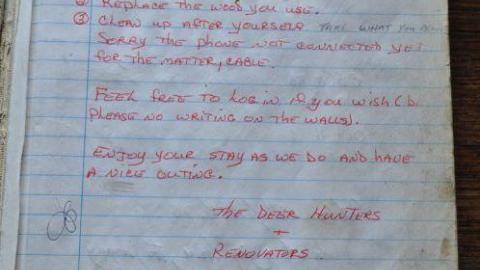 ② REPLACE THE WOOD YOU USE.
③ CLEAN UP AFTER YOURSELF TAKE WHAT YOU
SORRY THE PHONE NOT CONNECTED YET
FOR THE MATTER, CABLE.
FEEL FREE TO LOG IN IF YOU WISH (
PLEASE NO WRITING ON THE WALLS).
ENJOY YOUR STAY AS WE DO AND HAVE
A NICE OUTING.
THE DEER HUNTERS
+
RENOVATORS.